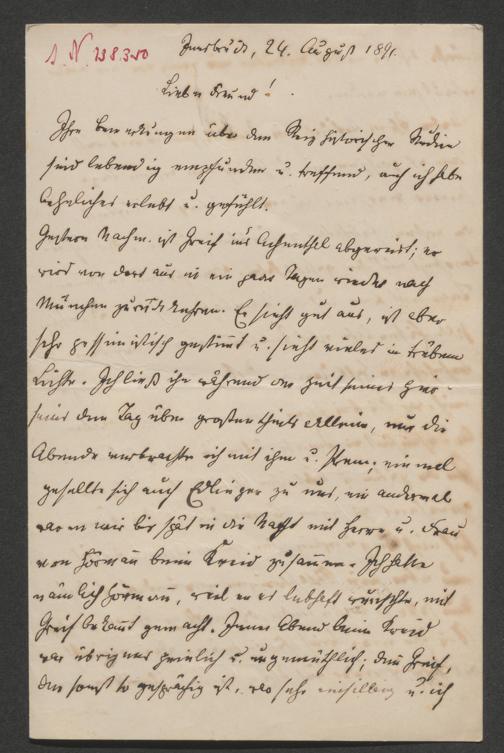 J. N. 138.350
Innsbruck, 24. August 1891.
Lieber Freund!
Ihre Bemerkungen über den Reiz historischer Studien
sind lebendig empfunden u. treffend, auch ich habe
Aehnliches erlebt u. gefühlt.
Gestern Nachm. ist Greif ins Achenthal abgereist; er
wird von dort aus in ein paar Tagen wieder nach
München zurückkehren. Er sieht gut aus, ist aber
sehr pessimistisch gestimt u. sieht vieles in trübem
Lichte. Ich ließ ihn während der Zeit seines Hier-
seins den Tag über großentheils allein, nur die
Abende verbrachte ich mit ihm u. ; einmal
gesellte sich auch Edlinger zu uns, ein andermal
waren wir bis spät in die Nacht mit Herrn u. Frau
von Hörmañ beim Kreid zusam̄en. Ich hatte
nämlich Hörmañ, weil er es lebhaft wünschte, mit
Greif bekañt gemacht. Jener Abend beim Kreid
war übrigens peinlich u. ungemüthlich, denn Greif,
der sonst so gesprächig ist, war sehr einsilbig u. ich